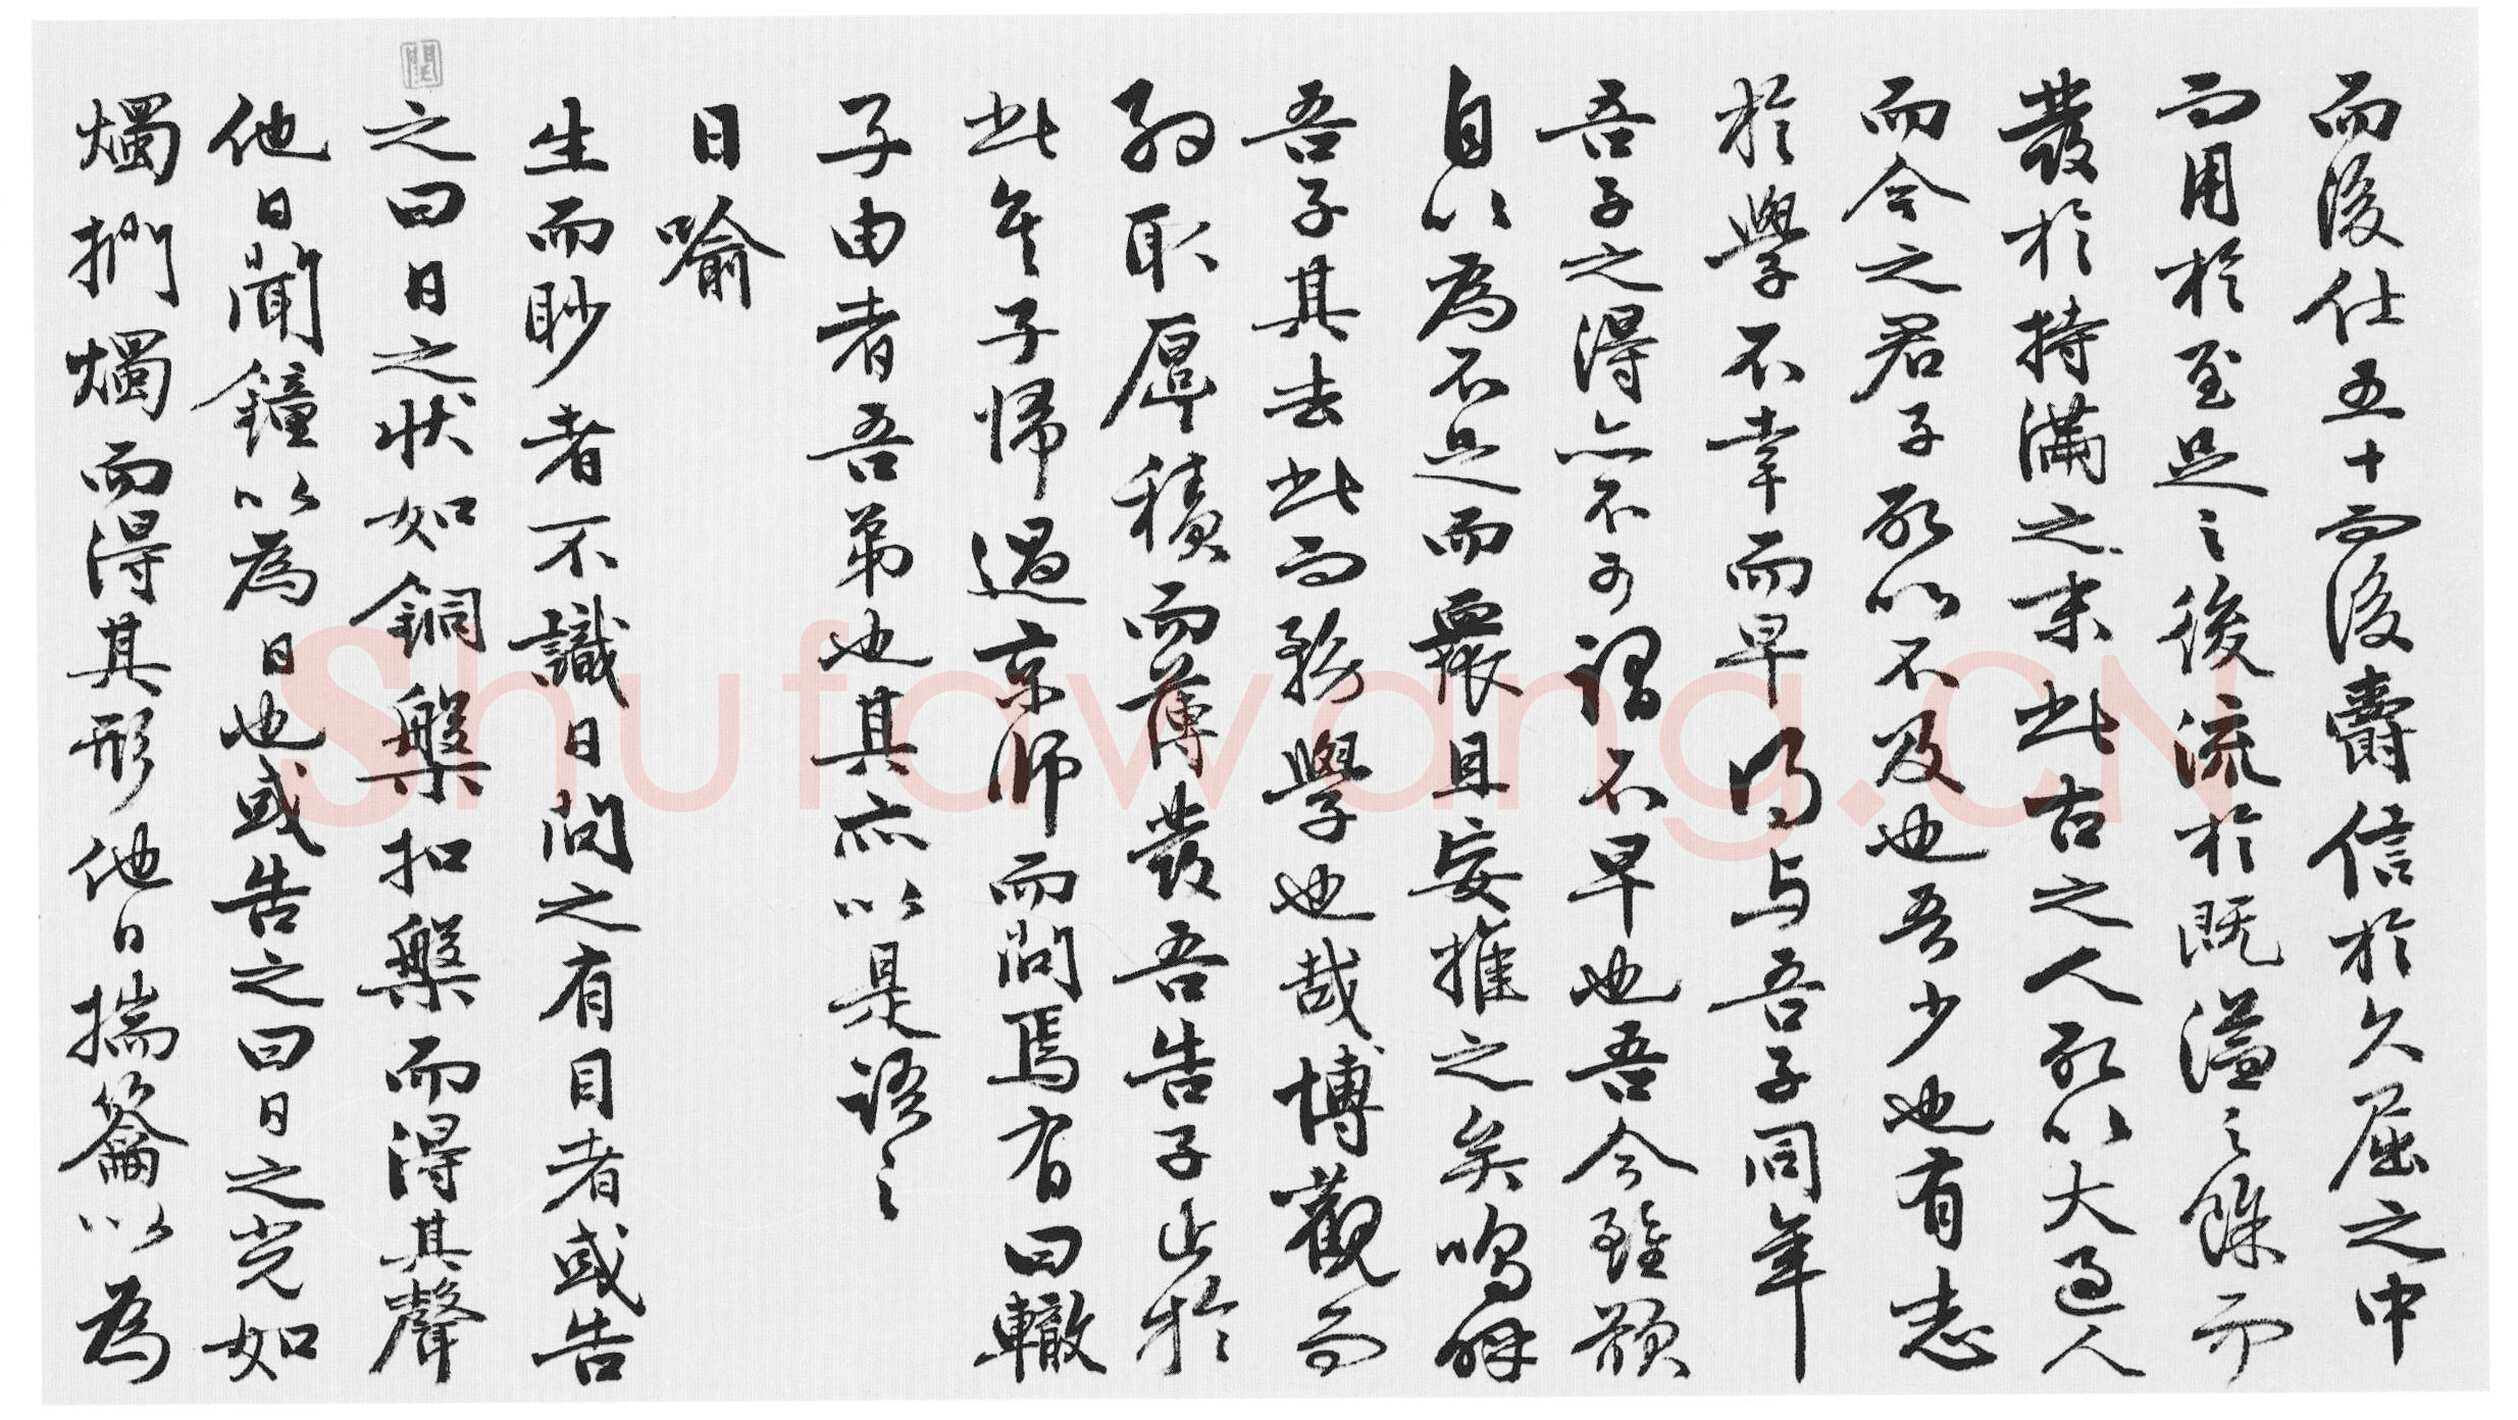 而後仕五十而後爵信於久屈之中
而用於至足之後流於既溢之餘而
發於持滿之末此古之人所以大過人
而今之君子所以不及也吾少也有志
於學不幸而早得与吾子同年
吾子之得亦不可謂不早也吾今雖欲
自以為不足而衆且妄推之矣嗚呼
吾子其去此而務學也哉博觀而
約取厚積而薄發吾告子止於
此矣子歸過京師而問焉有曰轍
子由者吾弟也其亦以是語之
日喻
生而眇者不識日問之有目者或告
之曰日之狀如銅槃扣槃而得其聲
他日聞鐘以為日也或告之曰日之光如
燭捫燭而得其形他日揣籥以為
Shufawang.CN